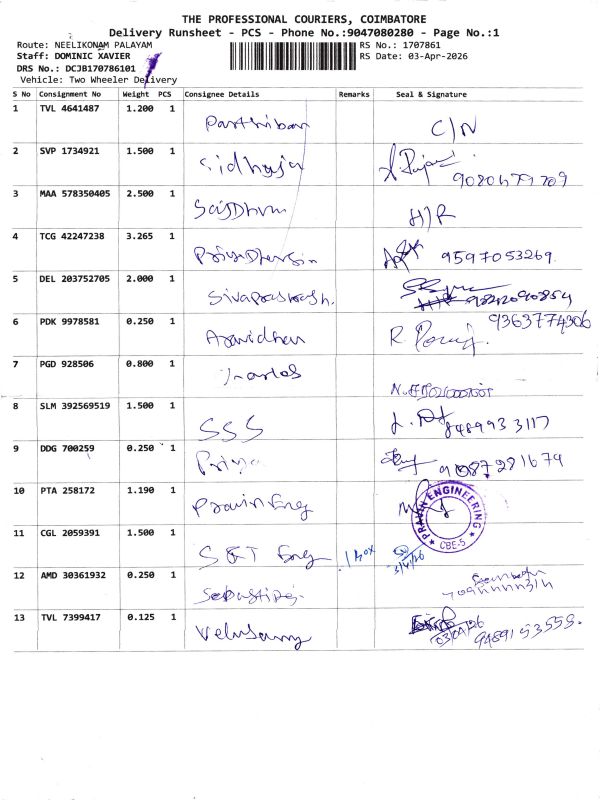 THE PROFESSIONAL COURIERS, COIMBATORE
Delivery Runsheet - PCS - Phone No.:9047080280 - Page No.:1
Route: NEELIKONAM PALAYAM
RS No.: 1707861
Staff: DOMINIC XAVIER
RS Date: 03-Apr-2026
DRS No.: DCJB170786101
Vehicle: Two Wheeler Delivery
S No Consignment No Weight PCS Consignee Details Remarks Seal & Signature
1 TVL 4641487 1.200 1 Parthiban C/N
2 SVP 1734921 1.500 1
3 MAA 578350405 2.500 1 H/R
4 TCG 42247238 3.265 1 9597053269.
5 DEL 203752705 2.000 1 Sivaprakash.
9363774306
6 PDK 9978581 0.250 1 Aravindhan R
7 PGD 928506 0.800 1
8 SLM 392569519 1.500 1 SSS 8489933117
9 DDG 700259 0.250 1 Priya
10 PTA 258172 1.190 1 Pravin Eng PRAVIN ENGINEERING CBE-5
11 CGL 2059391 1.500 1 S&T Eng 1 Box 3/4/26
12 AMD 30361932 0.250 1
13 TVL 7399417 0.125 1 Velusamy 03/04/26 9489153559.